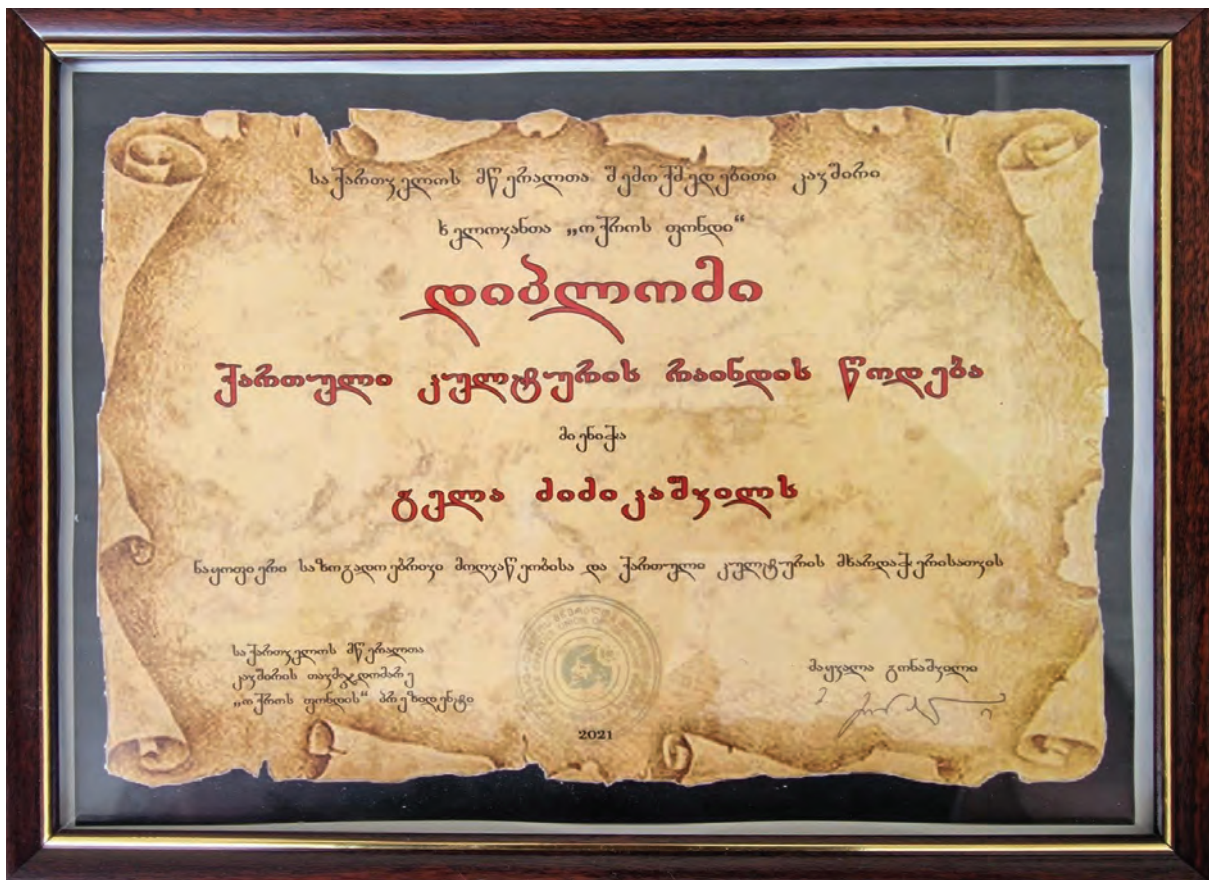 საქართველოს მწერალთა შემოქმედებითი კავშირი
ხელოვანთა „ოქროს ფონდი“
დიპლომი
ქართული კულტურის რაინდის წოდება
მიენიჭა
გელა ძიძიკაშვილს
ნაყოფიერი საზოგადოებრივი მოღვაწეობისა და ქართული კულტურის მხარდაჭერისათვის
საქართველოს მწერალთა
კავშირის თავმჯდომარე
„ოქროს ფონდის“ პრეზიდენტი
მაყვალა გონაშვილი
2021